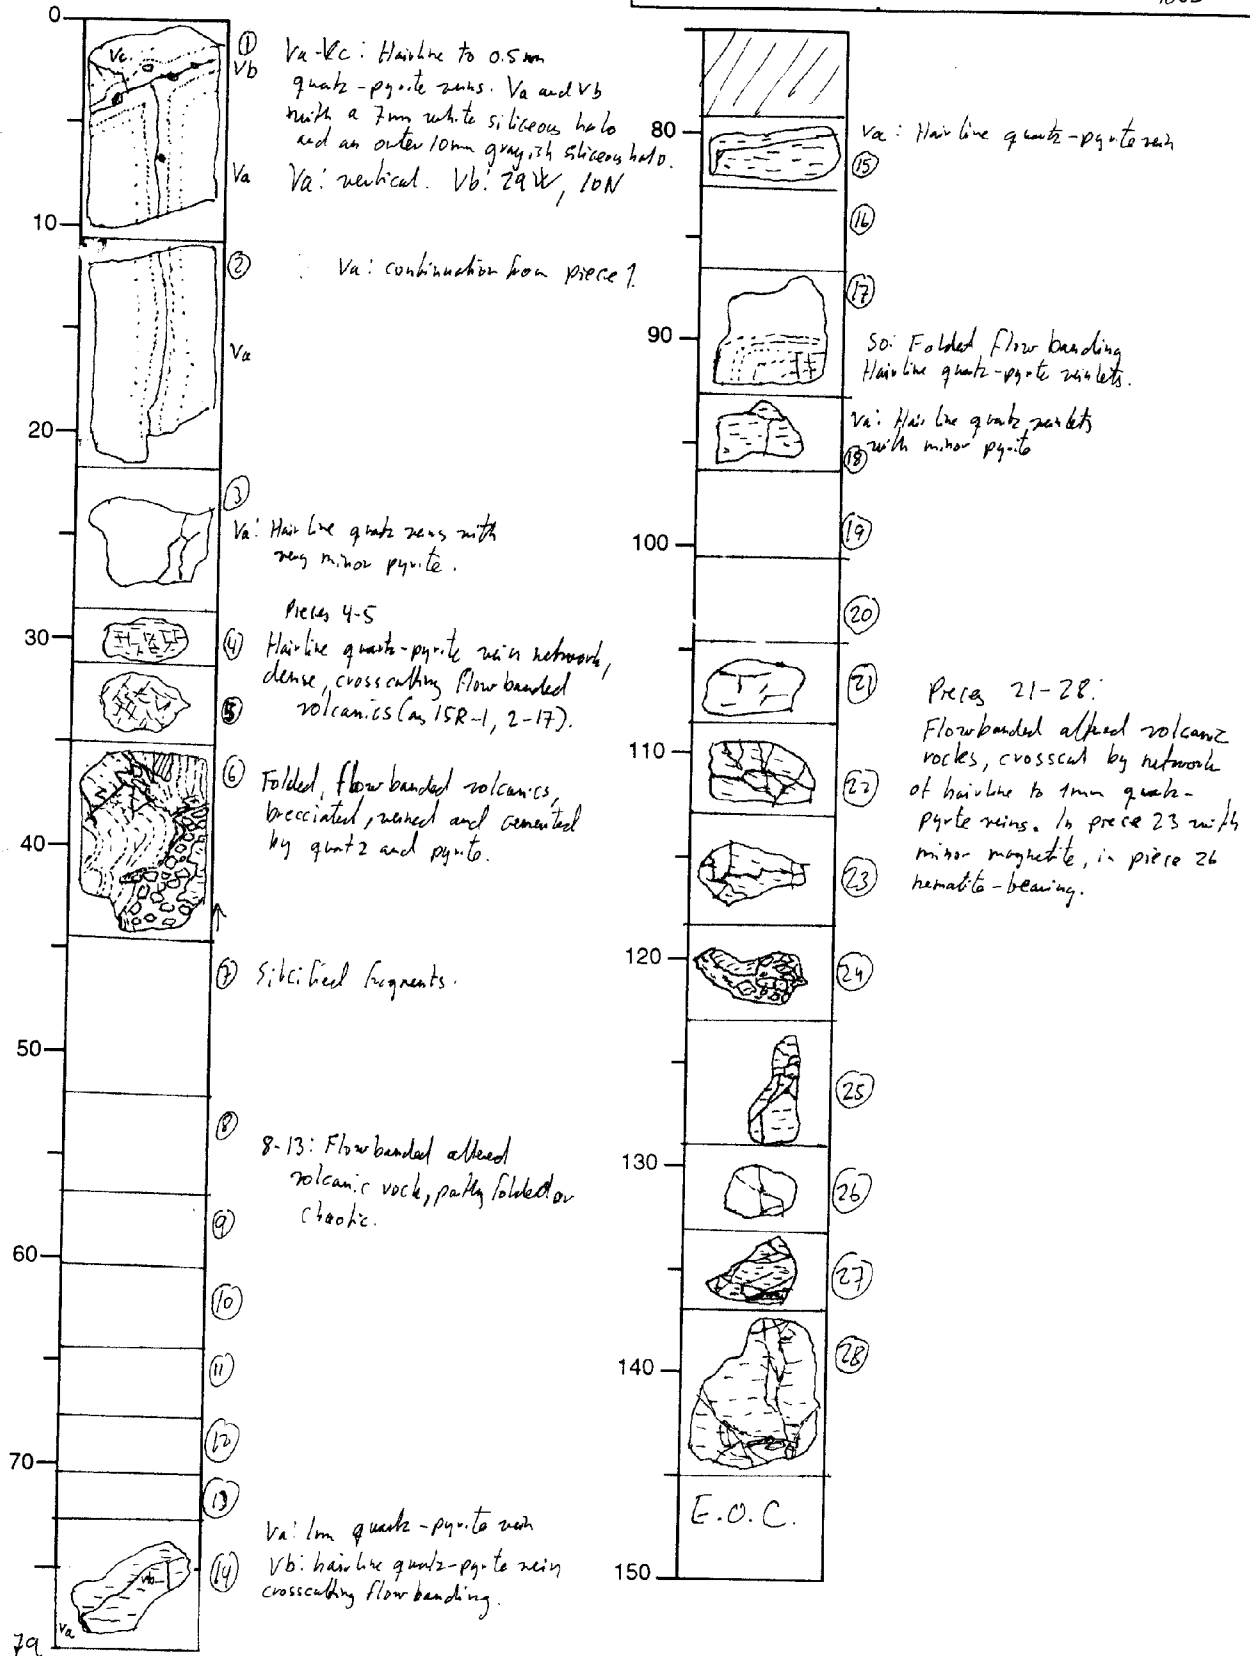 0
10
20
30
40
50
60
70
79
①
Vb
Vc
Va
Va-Vc: Hairline to 0.5mm
quartz-pyrite veins. Va and Vb
with a 7mm white siliceous halo
and an outer 10mm grayish siliceous halo.
Va: vertical. Vb: 29W, 10N
②
Va: continuation from piece 1.
Va
③
Va: Hairline quartz veins with
very minor pyrite.
Pieces 4-5
④
Hairline quartz-pyrite vein network,
dense, crosscutting flowbanded
volcanics (as 15R-1, 2-17).
⑤
⑥
Folded, flowbanded volcanics,
brecciated, veined and cemented
by quartz and pyrite.
⑦ Silicified fragments.
⑧
8-13: Flowbanded altered
volcanic rock, partly folded or
chaotic.
⑨
⑩
⑪
⑫
⑬
Va: 1mm quartz-pyrite vein
⑭ Vb: hairline quartz-pyrite vein
crosscutting flowbanding.
Vb
Va
80
90
100
110
120
130
140
150
Va: Hairline quartz-pyrite vein
⑮
⑯
⑰
S0: Folded Flowbanding
Hairline quartz-pyrite veinlets.
Va: Hairline quartz veinlets
with minor pyrite
⑱
⑲
⑳
㉑
Pieces 21-28:
Flowbanded altered volcanic
rocks, crosscut by network
of hairline to 1mm quartz-
pyrite veins. In piece 23 with
minor magnetite, in piece 26
hematite-bearing.
㉒
㉓
㉔
㉕
㉖
㉗
㉘
E.O.C.